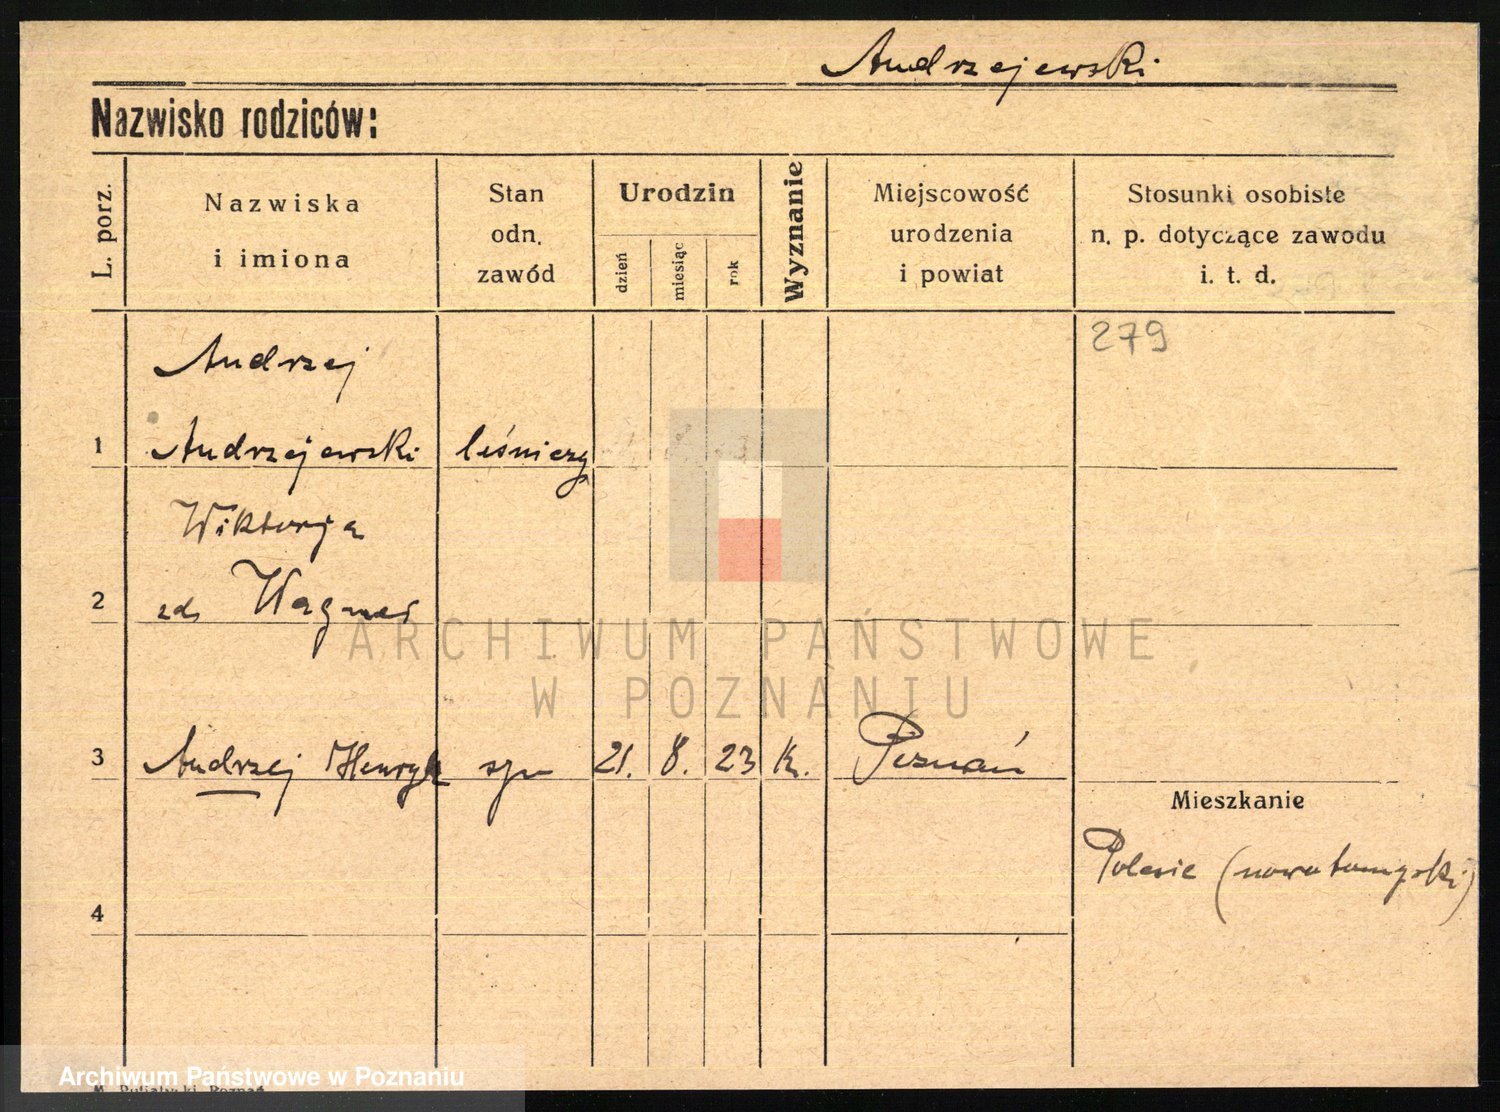 Andrzejewski
Nazwisko rodziców:
L. porz.
Nazwiska
i imiona
Stan
odn.
zawód
Urodzin
dzień
miesiąc
rok
Wyznanie
Miejscowość
urodzenia
i powiat
Stosunki osobiste
n. p. dotyczące zawodu
i. t. d.
279
Andrzej
1 Andrzejewski leśniczy
Wiktorja
2 zd. Wagner
ARCHIWUM PAŃSTWOWE
W POZNANIU
3 Andrzej Henryk syn 21. 8. 23 k. Poznań
Mieszkanie
Polesie (nowotomyski)
4
Archiwum Państwowe w Poznaniu